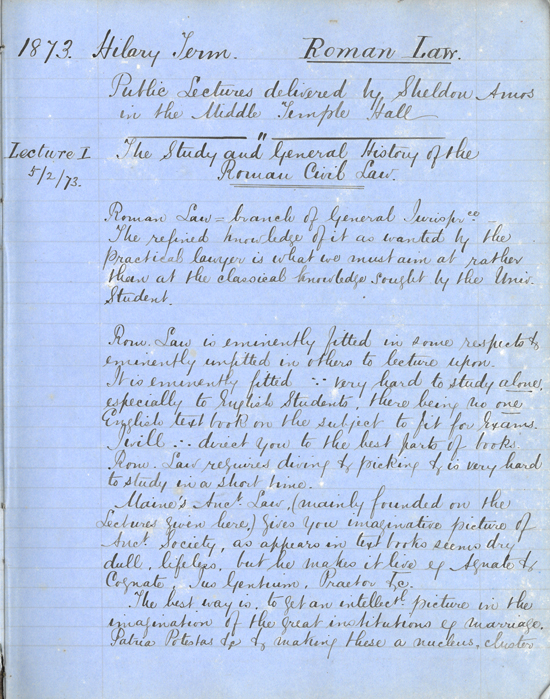 1873. Hilary Term. Roman Law.
Public Lectures delivered by Sheldon Amos
in the Middle Temple Hall
Lecture I The Study and General History of the
5/2/73. Roman Civil Law.
Roman Law = branch of General Jurispr.ce
The refined knowledge of it as wanted by the
practical lawyer is what we must aim at rather
than at the classical knowledge sought by the Univ.
Student.
Rom. Law is eminently fitted in some respects &
eminently unfitted in others to lecture upon.
It is eminently fitted ∵ very hard to study alone,
especially to English Students, there being no one
English text book on the subject to fit for Exams.
I will ∴ direct you to the best parts of books.
Rom. Law requires diving & picking & is very hard
to study in a short time.
Maine's Anct. Law, (mainly founded on the
Lectures given here,) gives you imaginative picture of
Anct. Society, as appears in text books seems dry
dull, lifeless, but he makes it live eg Agnate &
Cognate, Jus Gentium, Praetor &c.
The best way is, to get an intellectl. picture in the
imagination of the great institutions eg marriage,
Patria Potestas &c & making these a nucleus, cluster